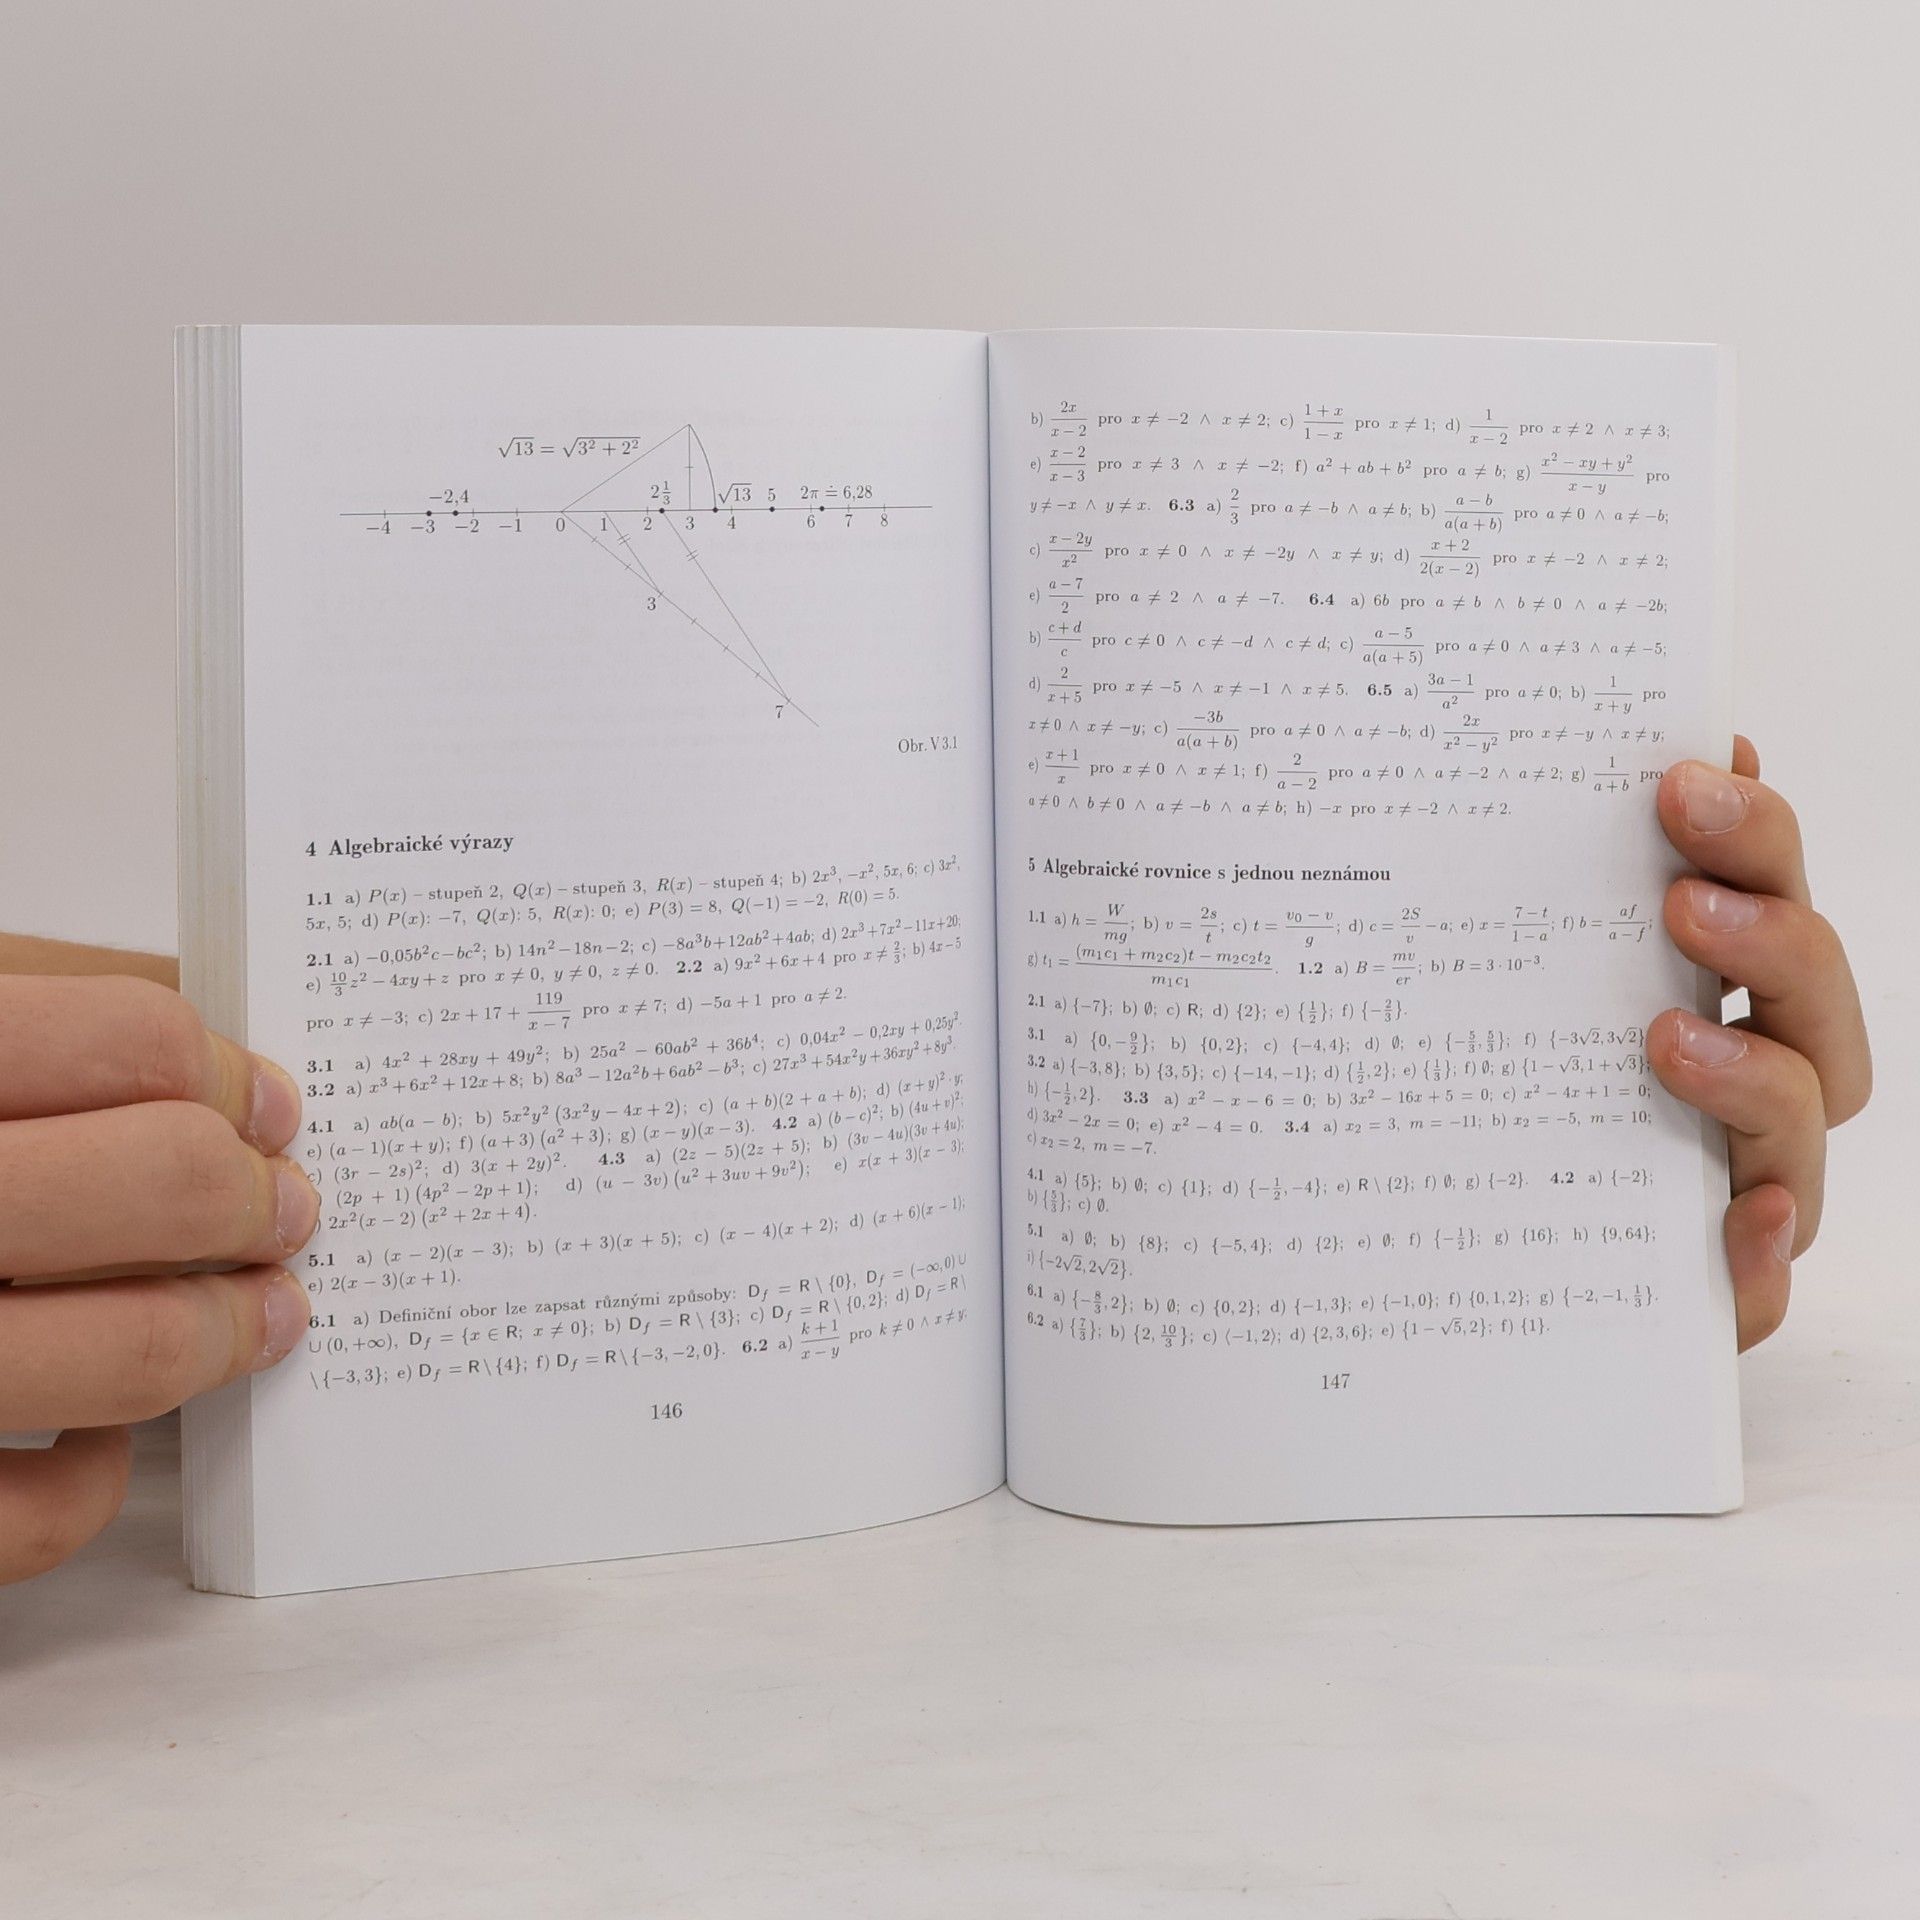 √13 = √3² + 2²
−2,4 2⅓ √13 5 2π ≐ 6,28
−4 −3 −2 −1 0 1 2 3 4 6 7 8
3
7
Obr. V 3.1
4 Algebraické výrazy
1.1 a) P(x) – stupeň 2, Q(x) – stupeň 3, R(x) – stupeň 4; b) 2x³, −x², 5x, 6; c) 3x²,
5x, 5; d) P(x): −7, Q(x): 5, R(x): 0; e) P(3) = 8, Q(−1) = −2, R(0) = 5.
2.1 a) −0,05b²c−bc²; b) 14n²−18n−2; c) −8a³b+12ab²+4ab; d) 2x³+7x²−11x+20;
e) 10/3 z² − 4xy + z pro x ≠ 0, y ≠ 0, z ≠ 0. 2.2 a) 9x² + 6x + 4 pro x ≠ 2/3; b) 4x−5
pro x ≠ −3; c) 2x + 17 + 119/(x − 7) pro x ≠ 7; d) −5a + 1 pro a ≠ 2.
3.1 a) 4x² + 28xy + 49y²; b) 25a² − 60ab² + 36b⁴; c) 0,04x² − 0,2xy + 0,25y².
3.2 a) x³ + 6x² + 12x + 8; b) 8a³ − 12a²b + 6ab² − b³; c) 27x³ + 54x²y + 36xy² + 8y³.
4.1 a) ab(a − b); b) 5x²y² (3x²y − 4x + 2); c) (a + b)(2 + a + b); d) (x + y)² · y;
e) (a − 1)(x + y); f) (a + 3) (a² + 3); g) (x − y)(x − 3). 4.2 a) (b − c)²; b) (4u + v)²;
c) (3r − 2s)²; d) 3(x + 2y)². 4.3 a) (2z − 5)(2z + 5); b) (3v − 4u)(3v + 4u);
) (2p + 1) (4p² − 2p + 1); d) (u − 3v) (u² + 3uv + 9v²); e) x(x + 3)(x − 3);
) 2x²(x − 2) (x² + 2x + 4).
5.1 a) (x − 2)(x − 3); b) (x + 3)(x + 5); c) (x − 4)(x + 2); d) (x + 6)(x − 1);
e) 2(x − 3)(x + 1).
6.1 a) Definiční obor lze zapsat různými způsoby: D_f = R \ {0}, D_f = (−∞, 0) ∪
∪ (0, +∞), D_f = {x ∈ R; x ≠ 0}; b) D_f = R \ {3}; c) D_f = R \ {0, 2}; d) D_f = R \
\ {−3, 3}; e) D_f = R \ {4}; f) D_f = R \ {−3, −2, 0}. 6.2 a) (k + 1)/(x − y) pro k ≠ 0 ∧ x ≠ y;
146
b) 2x/(x − 2) pro x ≠ −2 ∧ x ≠ 2; c) (1 + x)/(1 − x) pro x ≠ 1; d) 1/(x − 2) pro x ≠ 2 ∧ x ≠ 3;
e) (x − 2)/(x − 3) pro x ≠ 3 ∧ x ≠ −2; f) a² + ab + b² pro a ≠ b; g) (x² − xy + y²)/(x − y) pro
y ≠ −x ∧ y ≠ x. 6.3 a) 2/3 pro a ≠ −b ∧ a ≠ b; b) (a − b)/(a(a + b)) pro a ≠ 0 ∧ a ≠ −b;
c) (x − 2y)/x² pro x ≠ 0 ∧ x ≠ −2y ∧ x ≠ y; d) (x + 2)/(2(x − 2)) pro x ≠ −2 ∧ x ≠ 2;
e) (a − 7)/2 pro a ≠ 2 ∧ a ≠ −7. 6.4 a) 6b pro a ≠ b ∧ b ≠ 0 ∧ a ≠ −2b;
b) (c + d)/c pro c ≠ 0 ∧ c ≠ −d ∧ c ≠ d; c) (a − 5)/(a(a + 5)) pro a ≠ 0 ∧ a ≠ 3 ∧ a ≠ −5;
d) 2/(x + 5) pro x ≠ −5 ∧ x ≠ −1 ∧ x ≠ 5. 6.5 a) (3a − 1)/a² pro a ≠ 0; b) 1/(x + y) pro
x ≠ 0 ∧ x ≠ −y; c) −3b/(a(a + b)) pro a ≠ 0 ∧ a ≠ −b; d) 2x/(x² − y²) pro x ≠ −y ∧ x ≠ y;
e) (x + 1)/x pro x ≠ 0 ∧ x ≠ 1; f) 2/(a − 2) pro a ≠ 0 ∧ a ≠ −2 ∧ a ≠ 2; g) 1/(a + b) pro
a ≠ 0 ∧ b ≠ 0 ∧ a ≠ −b ∧ a ≠ b; h) −x pro x ≠ −2 ∧ x ≠ 2.
5 Algebraické rovnice s jednou neznámou
1.1 a) h = W/(mg); b) v = 2s/t; c) t = (v₀ − v)/g; d) c = 2S/v − a; e) x = (7 − t)/(1 − a); f) b = af/(a − f);
g) t₁ = ((m₁c₁ + m₂c₂)t − m₂c₂t₂)/(m₁c₁). 1.2 a) B = mv/(er); b) B = 3 · 10⁻³.
2.1 a) {−7}; b) ∅; c) R; d) {2}; e) {1/2}; f) {−2/3}.
3.1 a) {0, −9/2}; b) {0, 2}; c) {−4, 4}; d) ∅; e) {−5/3, 5/3}; f) {−3√2, 3√2}
3.2 a) {−3, 8}; b) {3, 5}; c) {−14, −1}; d) {1/2, 2}; e) {1/3}; f) ∅; g) {1 − √3, 1 + √3};
h) {−1/2, 2}. 3.3 a) x² − x − 6 = 0; b) 3x² − 16x + 5 = 0; c) x² − 4x + 1 = 0;
d) 3x² − 2x = 0; e) x² − 4 = 0. 3.4 a) x₂ = 3, m = −11; b) x₂ = −5, m = 10;
c) x₂ = 2, m = −7.
4.1 a) {5}; b) ∅; c) {1}; d) {−1/2, −4}; e) R \ {2}; f) ∅; g) {−2}. 4.2 a) {−2};
b) {5/3}; c) ∅.
5.1 a) ∅; b) {8}; c) {−5, 4}; d) {2}; e) ∅; f) {−1/2}; g) {16}; h) {9, 64};
i) {−2√2, 2√2}.
6.1 a) {−8/3, 2}; b) ∅; c) {0, 2}; d) {−1, 3}; e) {−1, 0}; f) {0, 1, 2}; g) {−2, −1, 1/3}.
6.2 a) {7/3}; b) {2, 10/3}; c) ⟨−1, 2⟩; d) {2, 3, 6}; e) {1 − √5, 2}; f) {1}.
147